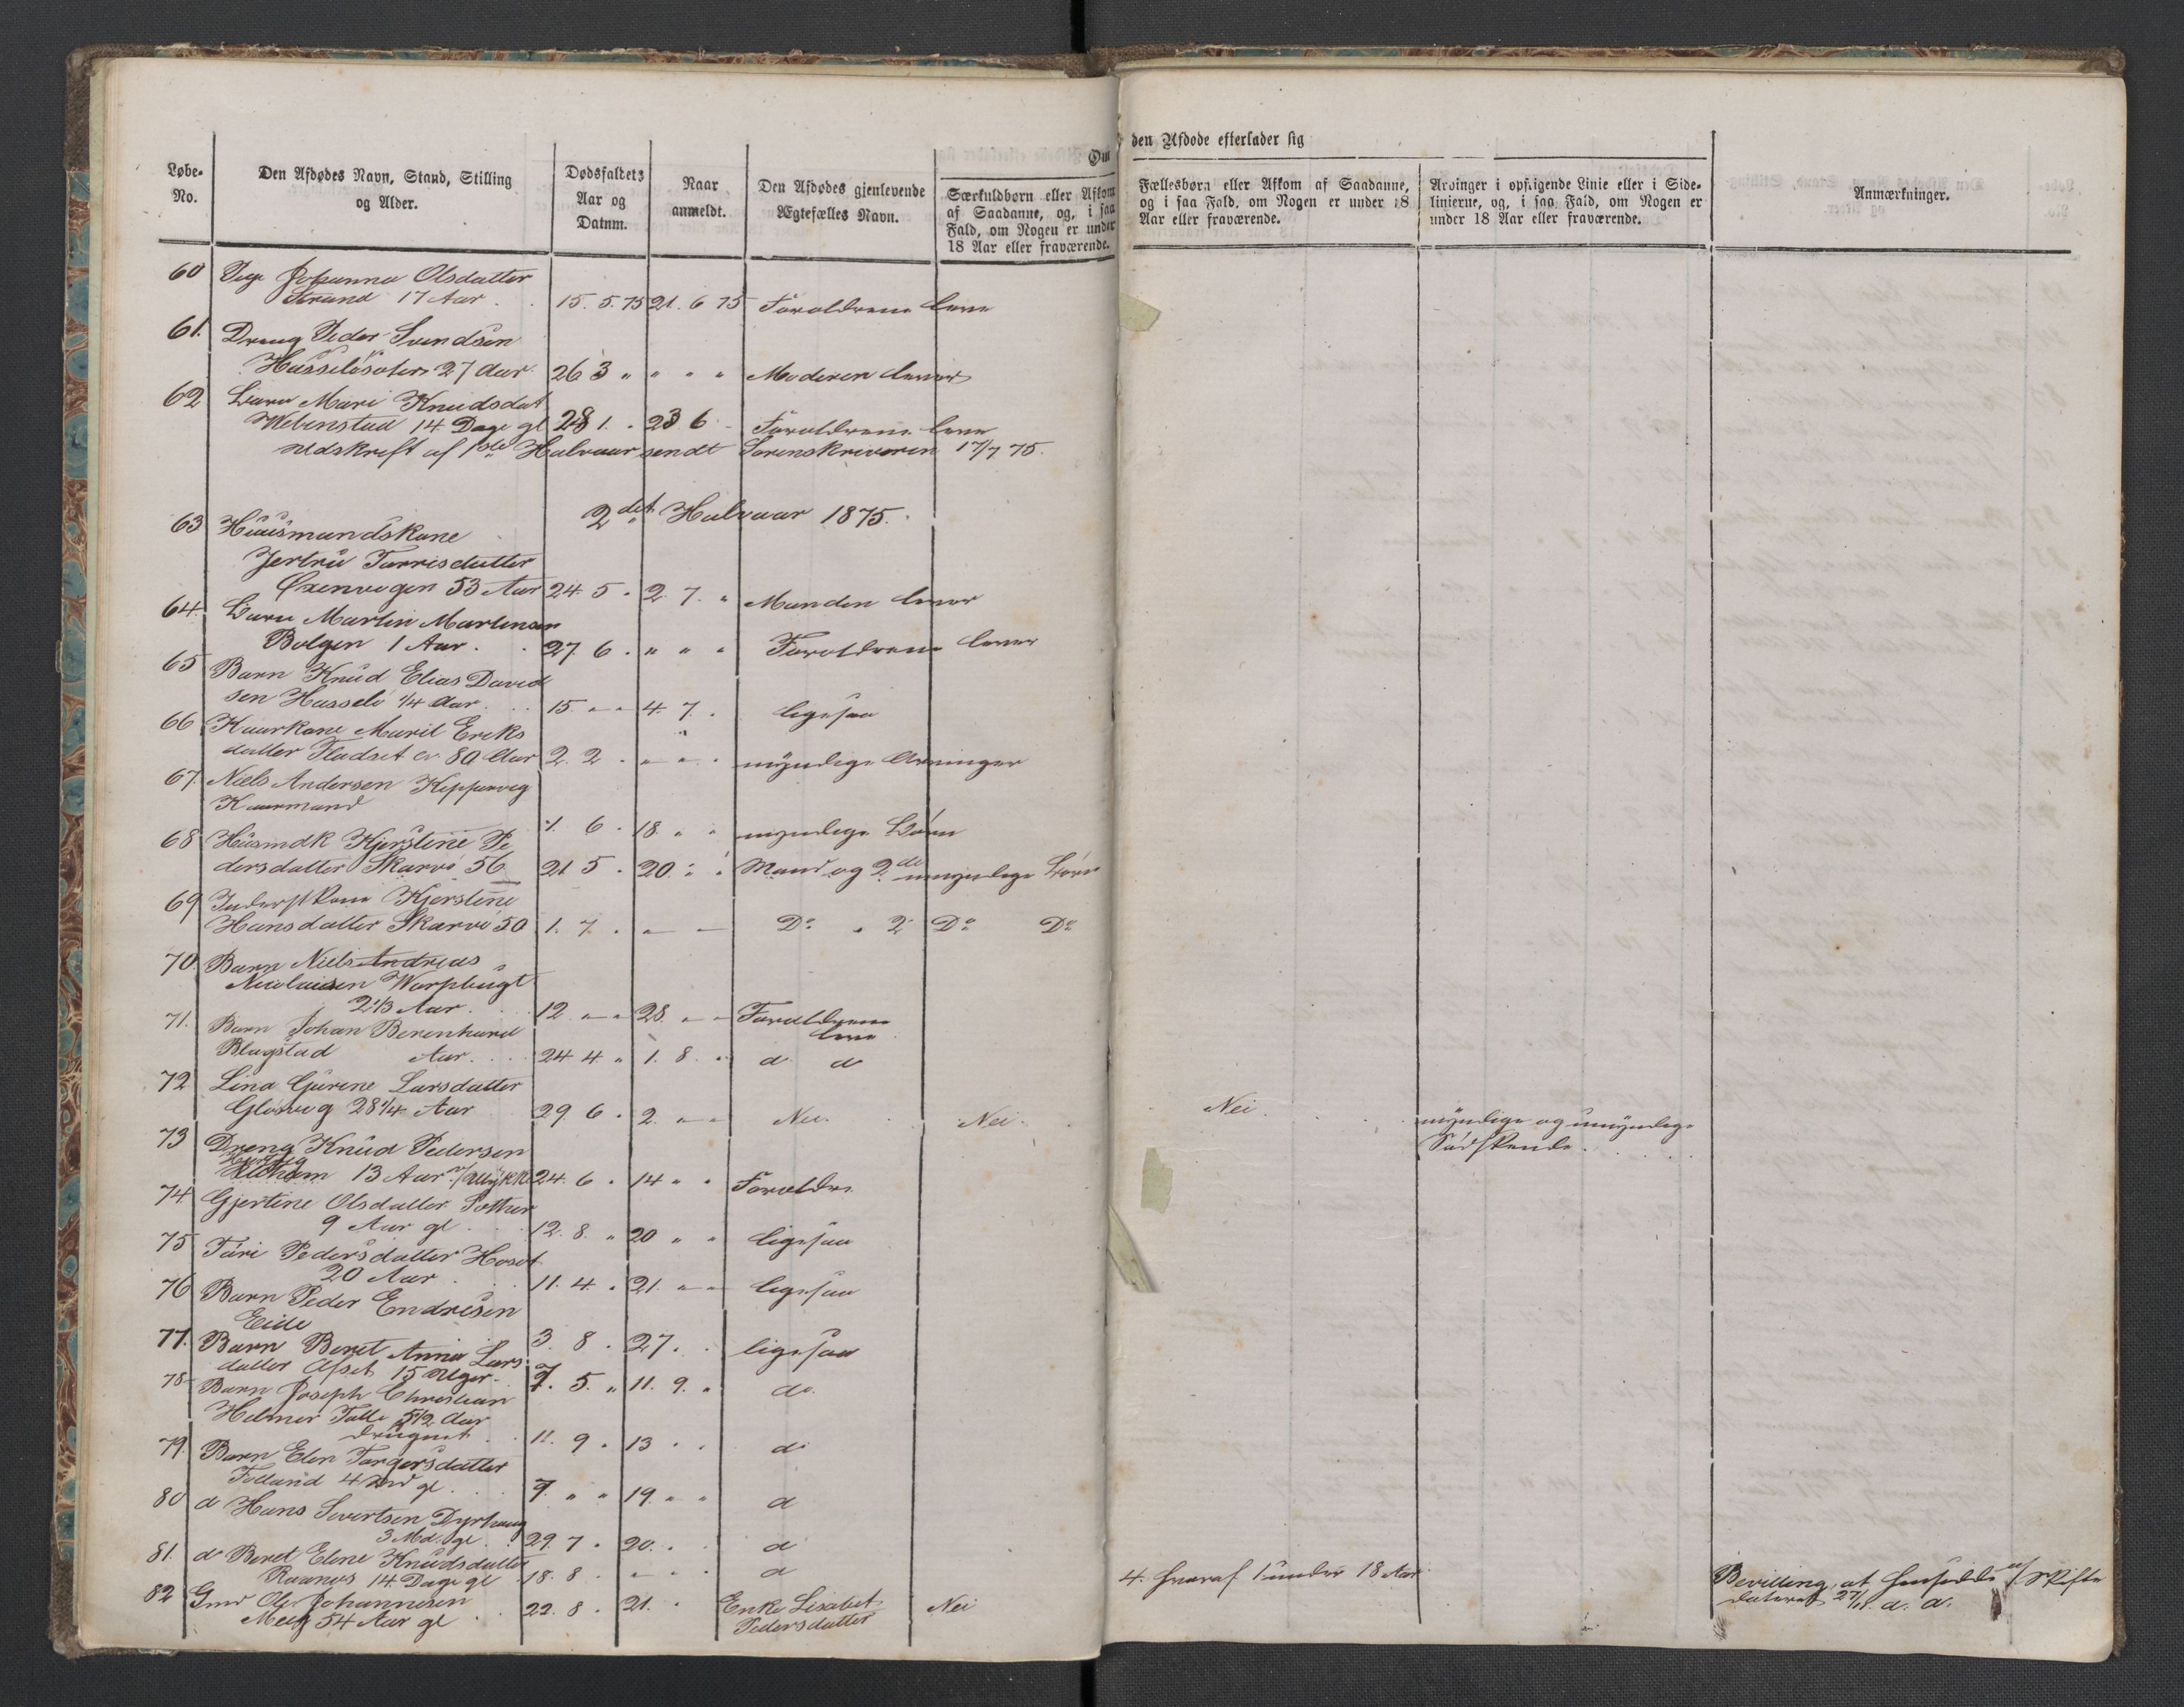 Om den Afdøde efterlader sig
Løbe-
No.
Den Afdødes Navn, Stand, Stilling
og Alder.
Dødsfaldets
Aar og
Datum.
Naar
anmeldt.
Den Afdødes gjenlevende
Ægtefælles Navn.
Særkuldbørn eller Afkom
af Saadanne, og, i saa
Fald, om Nogen er under
18 Aar eller fraværende.
Fællesbørn eller Afkom af Saadanne,
og i saa Fald, om Nogen er under 18
Aar eller fraværende.
Arvinger i opstigende Linie eller i Side-
linierne, og, i saa Fald, om Nogen er
under 18 Aar eller fraværende.
Anmærkninger.
60 Pige Johanna Olsdatter
Strand 17 Aar . . 15. 5. 75 21. 6 75 Forældrene leve
61. Dreng Peder Svendsen
27 Aar 26 3 " " " " Moderen lever
62 Barn Mari Knudsdat
14 Dage gl 28 1. " 23 6. - Forældrene leve
Udskrift af 1ste Halvaar sendt Sorenskriveren 17/7 75.
2det Halvaar 1875.
63 Huusmandskone
Jertru Tarrisdatter
53 Aar 24. 5 . 2. 7. " Manden lever
64. Barn Martin Martinsen
Bolgen 1 Aar. . 27. 6 . " " " Forældrene lever
65 Barn Knud Elias David
sen Hasselö 1/4 Aar. . 15. " " 4. 7. . ligesaa
66 Kaarkone Marit Eriks
datter Fladset 80 Aar 2. 2 . " " . myndige Arvinger
67. Niels Andersen Keppervig
Kaarmand 1. 6 . 18. " " myndige Börn
68 Huusmdk Kjerstine Pe
dersdatter Skarvö 56 21 5 . 20. " " Mand og 2de umyndige Börn
69 Inderstkone Kjerstine
Hansdatter Skarvö 50 1. 7. . " — Do . 2 Do Do
70. Barn Niels Andreas
Nicolaisen Warpbugt
2 1/3 Aar. . 12 " " 28. " " Forældrene
leve
71. Barn Johan Berenhard
Blagstad Aar. . . . 24 4 " 1. 8. " d d
72 Lina Gurine Larsdatter
Glosvig 28 1/4 Aar 29 6 . 2. " " Nei. . Nei. . Nei. . . . myndige og umyndige
Södskende . . . .
73 Dreng Knud Pedersen
13 Aar 24. 6 . 14 " " Forældre
74 Gjertine Olsdatter
9 Aar gl . . . 12. 8. " 20 " " ligesaa
75 Turi Pedersdatter Hoset
20 Aar . . . 11. 4. . 21. " " ligesaa
76 Barn Peder Endresen
Eide 3. 8 . 27. . . ligesaa
77. Barn Beret Anna Lars
datter 15 Uger. . 7. 5. " 11. 9. " do.
78 Barn Joseph Christian
Helmer 5 1/2 Aar
druknet . . 11. 9 . 13 . . d
79. Barn Elen Torgersdatter
Folland 4 Md gl . . . 7. " " 19. " " d
80 d Hans Sivertsen Dyrhaug
3 Md. gl . . 29. 7 . 20. . . d
81. d Beret Eline Knudsdatter
14 Dage gl . 18. 8 . " . . d
82 Gmd Ole Johannesen
Meeg 54 Aar gl . . 22. 8 . 21. . Enke Lisabet
Pedersdatter Nei 4. hvoraf 1 under 18 Aar Bevilling at hensidde i uskifte
dateret 27/11. d. A.